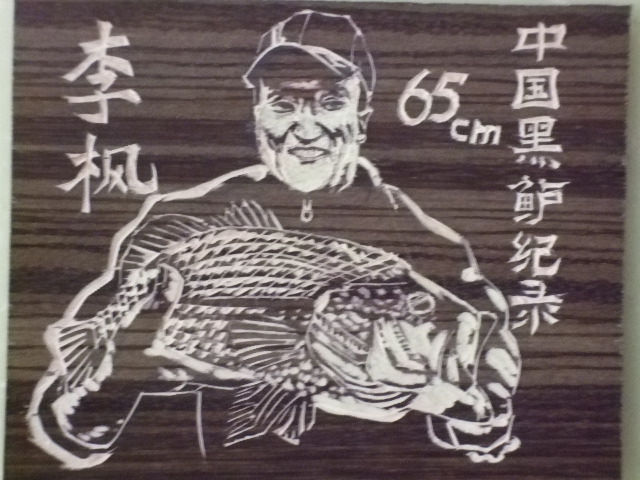 李枫
65cm
中国黑鲈纪录